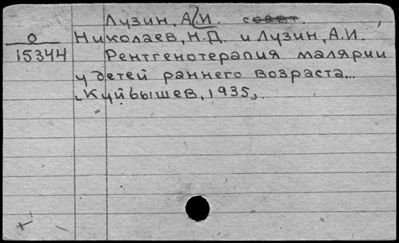 Лузин, А.И. соавт.
О
Николаев, Н.Д. и Лузин, А.И.
15344 Рентгенотерапия малярии
у детей раннего возраста...
Куйбышев, 1935,